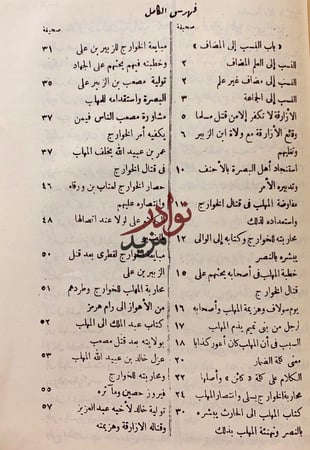 فهرس الكامل
صحيفة
« باب النسب إلى المضاف »
النسب إلى العلم المضاف ٢
النسب إلى مضاف غير علم ٢
النسب إلى الجماعة ٣
الأزارقة لا تكفر إلا من قتل مسلما ٥
وقائع الأزارقة مع ولاة ابن الزبير ٦
وتغلبهم
استنجاد أهل البصرة بالأحنف ١٠
وتدبيره الأمر
مفاوضة المهلب في قتال الخوارج
واستعداده لذلك
محاربته للخوارج وكتابه إلى الوالى ١٢
يبشره بالنصر
خطبة المهلب فى أصحابه يحثهم على ١٥
قتال الخوارج
يوم سولاف وهزيمة المهلب وأصحابه ١٦
رجز من بنى تميم يذم المهلب ١٧
السبب فى أن المهلب كان أعور كذابا ١٨
معنى كلة الضمار ٢٠
الكلام على كلة « كائن » وأصلها ٢٢
محاربة الخوارج بسلى وانتصار المهلب ٢٤
كتاب المهلب الى الحارث يبشره ٣٠
بالنصر وتهنئة المهلب بذلك
صحيفة
مبايعة الخوارج للزبير بن على ٣١
وخطبته فيهم يحثهم على الجهاد
تولية مصعب بن الزبير على ٣٥
البصرة واستقدامه للمهلب
مشاورة مصعب الناس فيمن ٣٧
يكفيه أمر الخوارج
عمر بن عبيد الله يخلف المهلب ٣٧
فى قتال الخوارج
حصار الخوارج لعتاب بن ورقاء ٤٦
وانتصاره عليهم
على لولا عند اتصالها ٤٨
نوادر
مزيد
مبايعة الخوارج لقطرى بعد قتل ٥٠
الزبير بن على
محاربة المهلب للخوارج وطردهم ٥١
من الأهواز الى رام هرمز
كتاب عبد الملك الى المهلب ٥٢
بولايته بعد قتل مصعب
عزل خالد بن عبيد الله المهلب ٥٣
ومحاربته للخوارج
فيروز حصين ومآثره ٥٥
تولية خالد لأخيه عبد العزيز ٥٧
وقتاله الازارقة وهزيمته